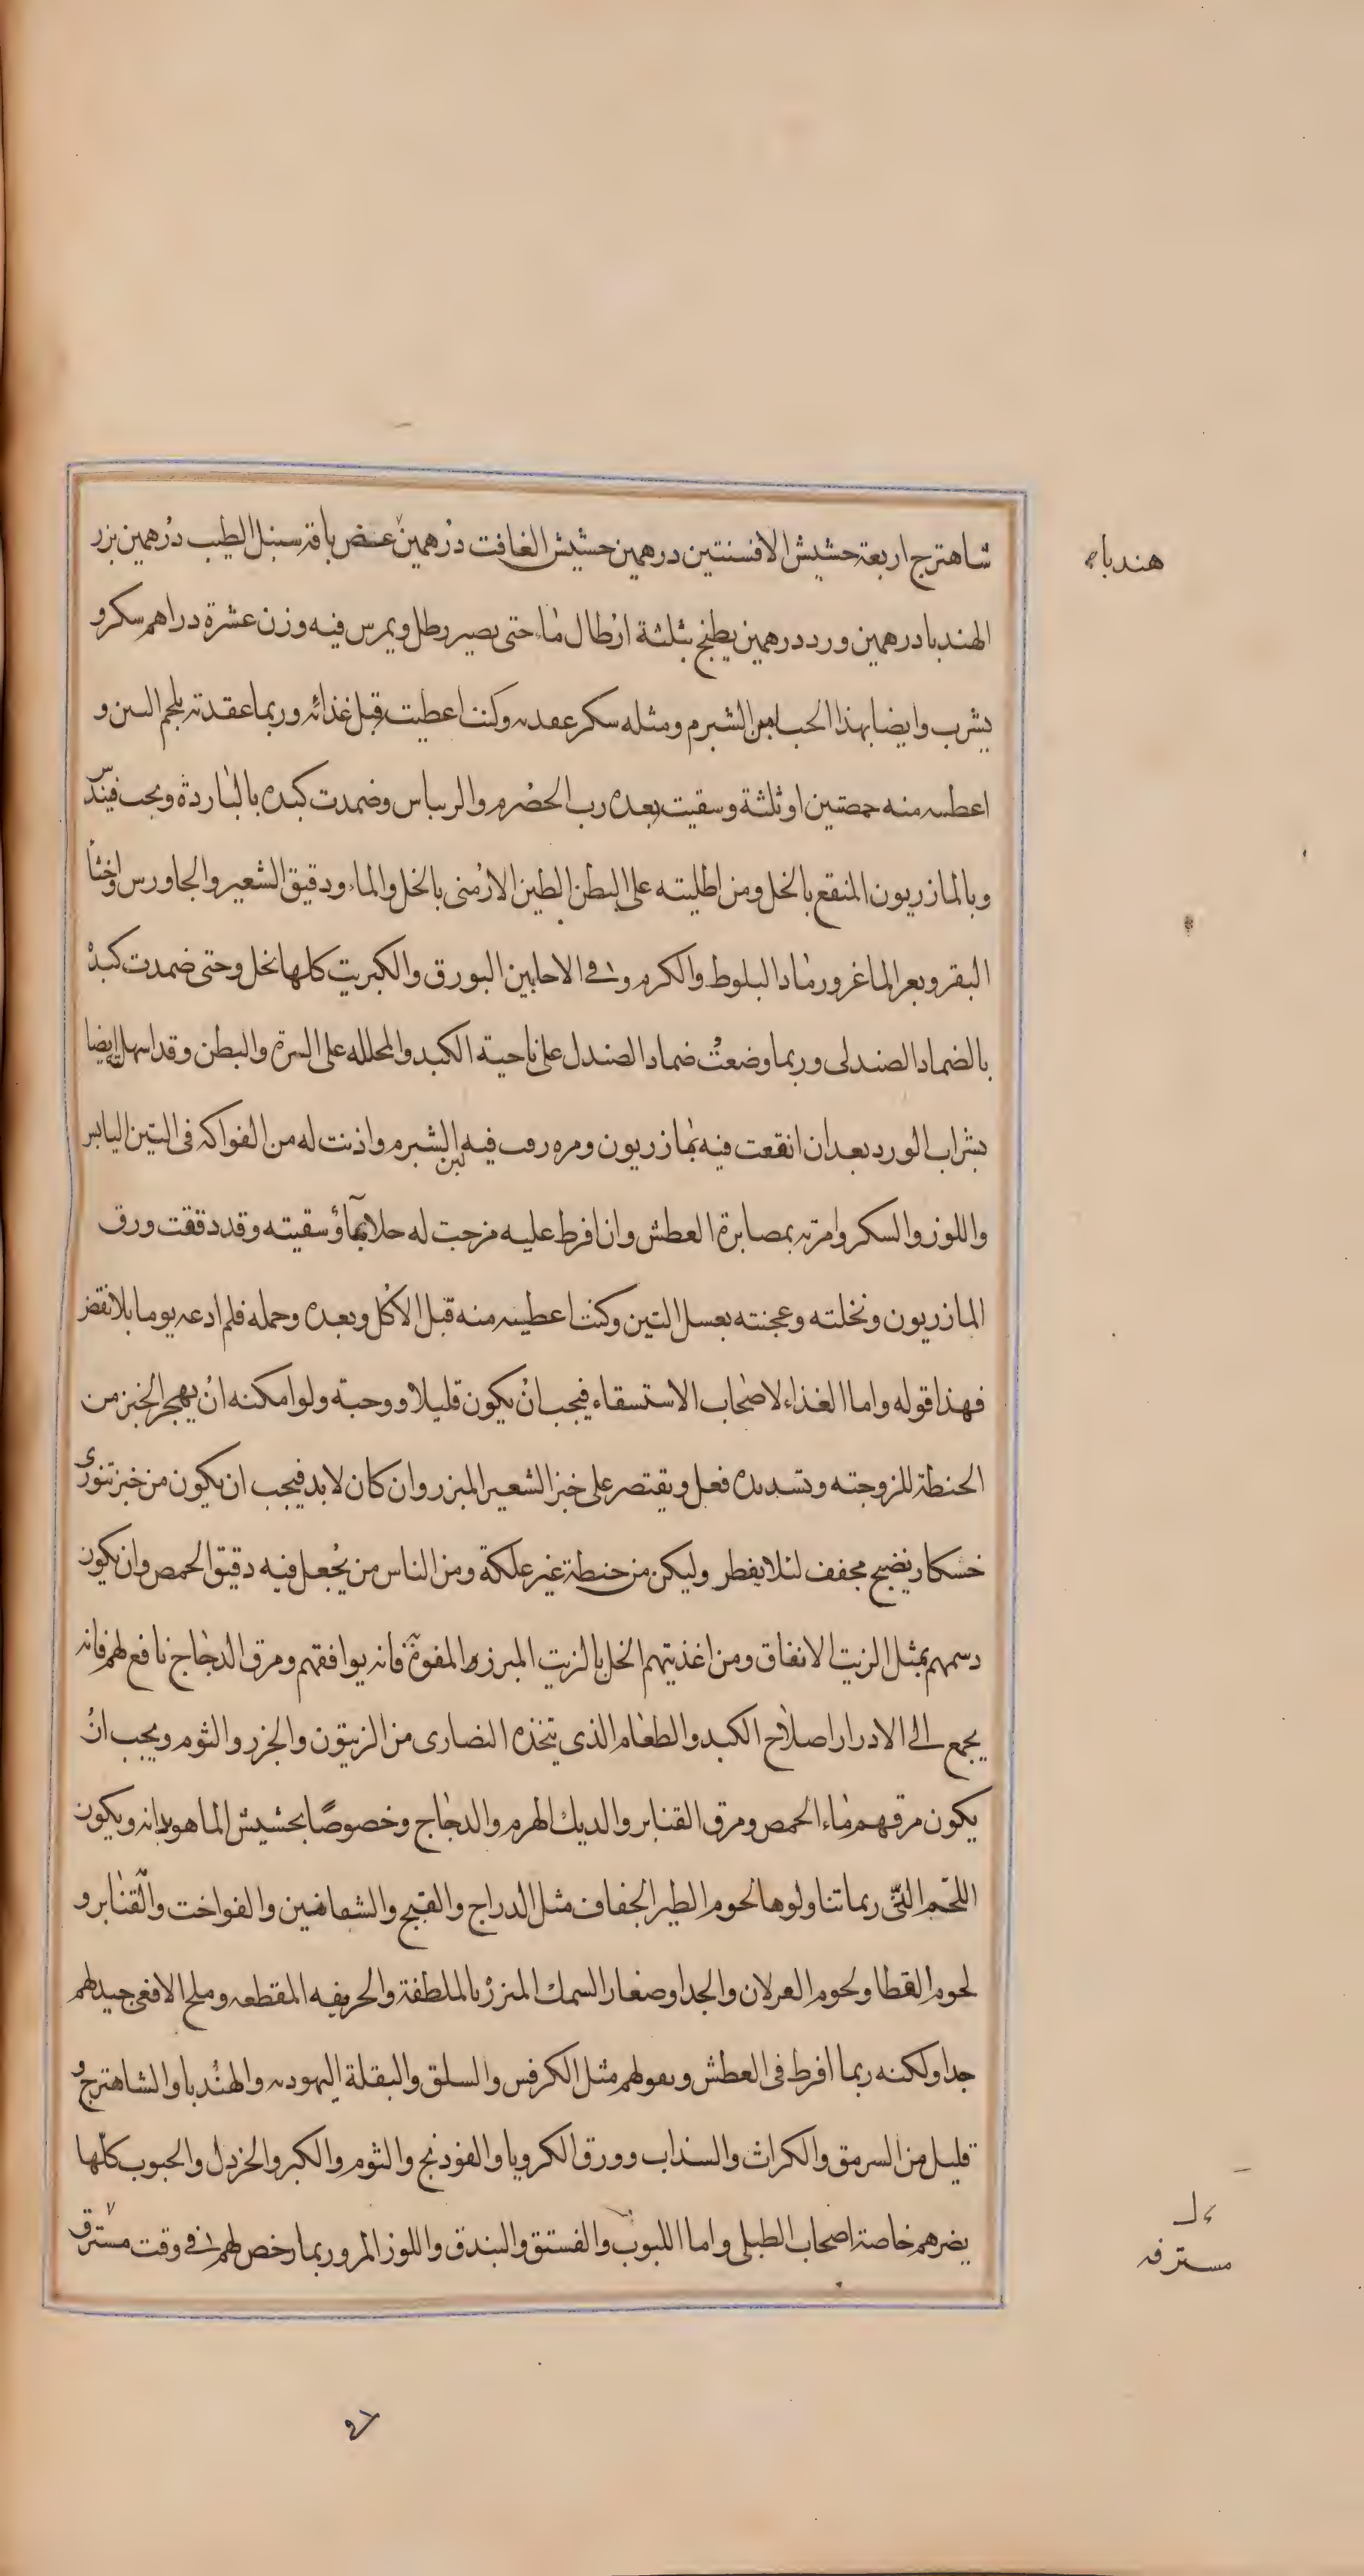 شاهترج اربعة حشيش الافسنتين درهمين حشيش الغافت درهمين عض باقة سنبل الطيب درهمين بزر
هندباء
الهندبا درهمين ورد درهمين يطبخ بثلثة ارطال ماء حتى يصير رطل ويمرس فيه وزن عشرة دراهم سكر و
يشرب وايضا بهذا الحب لبن الشبرم ومثله سكر عقد به وكنت اعطيت قبل غذائه وربما عقدته بلحم التين و
اعطيه منه حمصتين او ثلثة وسقيت بعده رب الحصرم والريباس وضمدت كبده بالباردة ويحب
وبالمازريون المنقع بالخل ومن اطليته على البطن الطين الارمنى بالخل والماء ودقيق الشعير والجاورس واخثا
البقر وبعر الماغر ورماد البلوط والكرم وفى الاحايين البورق والكبريت كلها بخل وحتى ضمدت كبده
بالضماد الصندلى وربما وضعت ضماد الصندل على ناحية الكبد والمحلله على السرة والبطن وقد اسهلته ايضا
بشراب الورد بعد ان انقعت فيه مازريون ومره روب فيه لبن الشبرم واذنت له من الفواكه فى التين اليابس
واللوز والسكر وامرته بمصابرة العطش وان افرط عليه مزجت له جلابا بماء وسقيته وقد دققت ورق
المازريون ونخلته وعجنته بعسل التين وكنت اعطيه منه قبل الاكل وبعده وجمله فلم ادعه يوما بلا نفض
فهذا قوله واما الغذاء لاصحاب الاستسقاء فيجب ان يكون قليلا ووجبة ولو امكنه ان يهجر الخبز من
الحنطة للزوجته وتسديده فعل ويقتصر على خبز الشعير المبزر وان كان لابد فيجب ان يكون من خبز تنورى
خشكار نضيج مجفف لئلا يفطر وليكن من حنطة غير علكة ومن الناس من يجعل فيه دقيق الحمص وان يكون
دسمهم بمثل الزيت الانفاق ومن اغذيتهم الخل بالزيت المبرزه المفوهة فانه يوافقهم ومرق الدجاج نافع لهم فانه
يجمع الى الادرار اصلاح الكبد والطعام الذى يتخذه النصارى من الزيتون والجزر والثوم ويجب ان
يكون مرقهم ماء الحمص ومرق القنابر والديك الهرم والدجاج وخصوصا بحشيش الماهوبدانه ويكون
اللحم التى ربما تناولوها لحوم الطير الجفاف مثل الدراج والقبج والشفانين والفواخت والقنابر و
لحوم القطا ولحوم الغزلان والجدا وصغار السمك المبزر بالملطفة والحريفه المقطعه وملح الافعى جيد لهم
جدا ولكنه ربما افرط فى العطش وبقولهم مثل الكرفس والسلق والبقلة اليهوديه والهندبا والشاهترج و
قليل من السرمق والكراث والسذاب وورق الكرويا والفودنج والثوم والكبر والخردل والحبوب كلها
يضرهم خاصة اصحاب الطبلى واما اللبوب والفستق والبندق واللوز المر وربما رخص لهم فى وقت مسترق
مسترفه